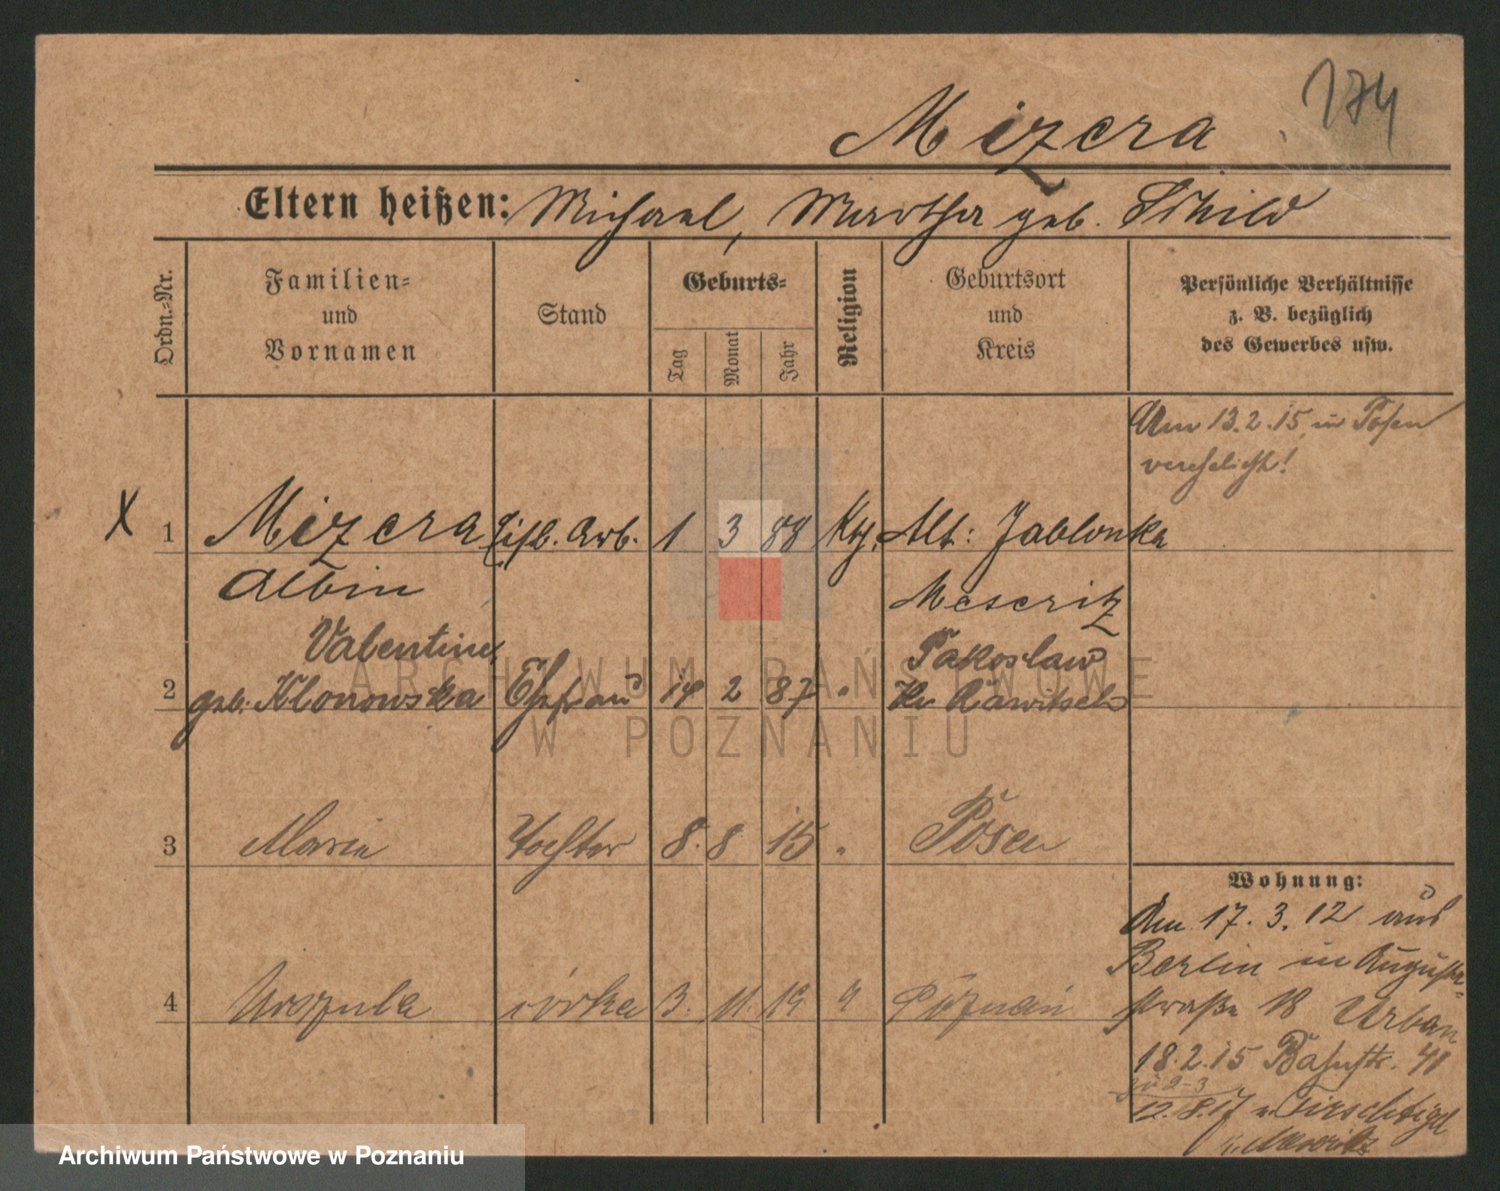 174
Mizera
Eltern heißen: Michael, Martha geb. Schild
Ordn.-Nr.
Familien-
und
Vornamen
Stand
Geburts-
Tag
Monat
Jahr
Religion
Geburtsort
und
Kreis
Persönliche Verhältnisse
z. B. bezüglich
des Gewerbes usw.
Am 13.2.15 in Posen
verehelicht!
X 1 Mizera Arb. 1 3 88 Kth. Alt: Jablonka
Albin Meseritz
Valentine, Pakoslaw
2 geb. Klonowska Ehefrau 14 2 87 " Kr Rawitsch
3 Maria Tochter 8. 8 15 " Posen
4 Urszula córka 3. 11. 19 " Poznań
Wohnung:
Am 17. 3. 12 aus
Berlin in Auguste-
straße 18 Urban
18.2.15 41
zu 2-3
12.8.17 Tirschtigel
ARCHIWUM PAŃSTWOWE
W POZNANIU
Archiwum Państwowe w Poznaniu